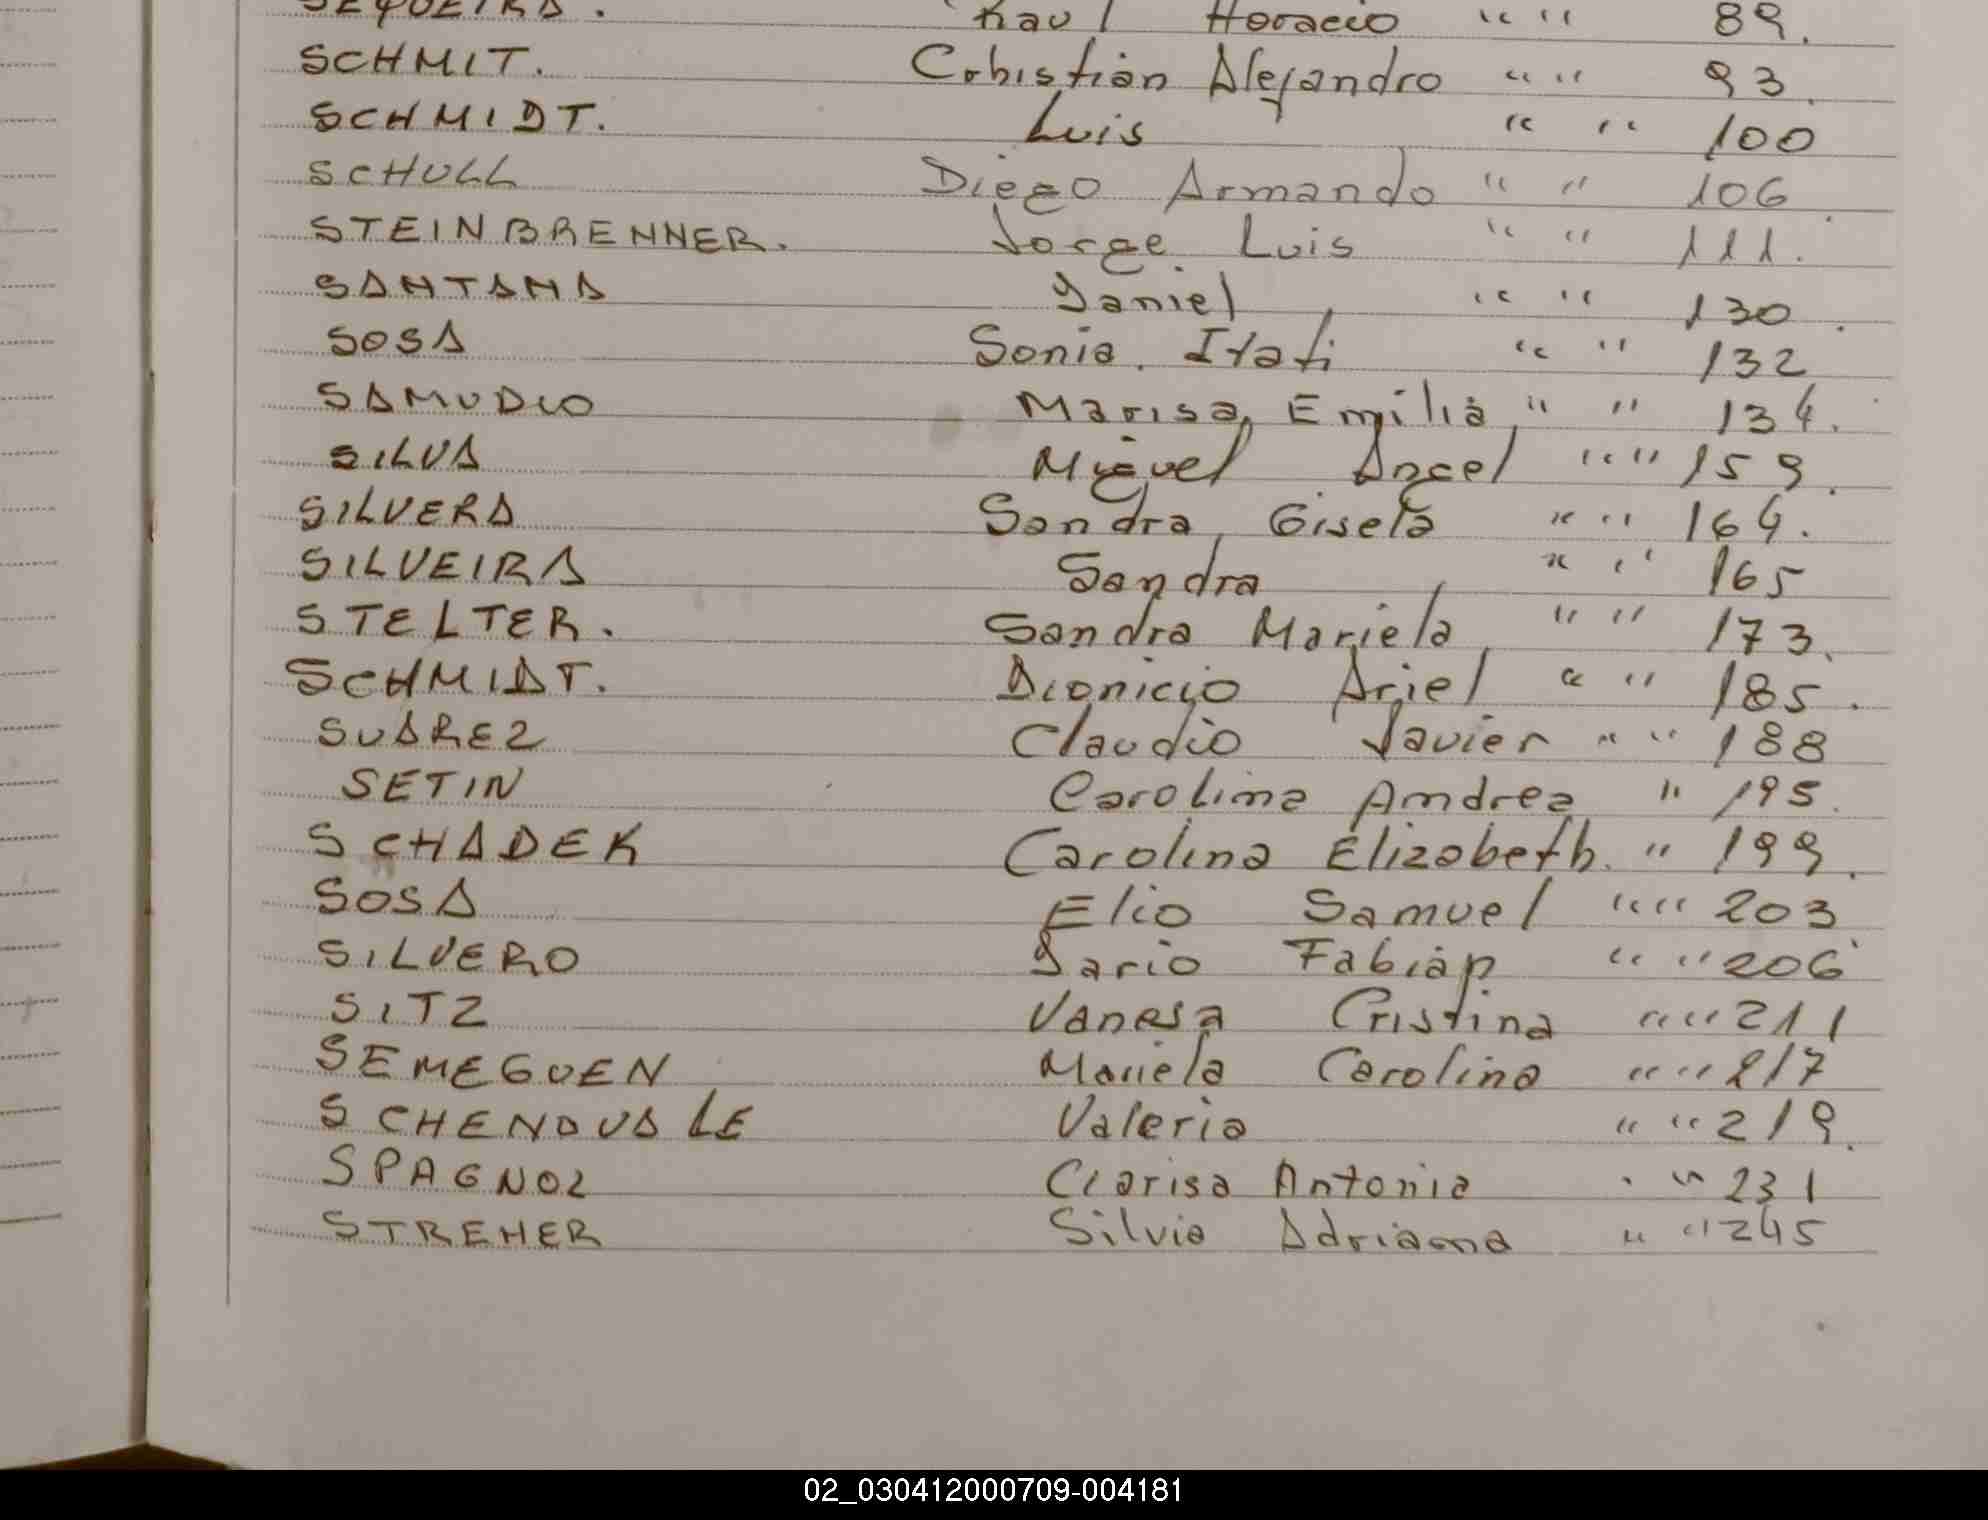 SEQUEIRA. Raul Horacio " " 89.
SCHMIT. Crhistian Alejandro " " 93.
SCHMIDT. Luis " " 100
SCHULL Diego Armando " " 106
STEINBRENNER. Jorge Luis " " 111.
SANTANA Daniel " " 130.
SOSA Sonia Itati " " 132
SAMUDIO Marisa Emilia " " 134.
SILVA Miguel Angel " " 159.
SILVERA Sandra Gisela " " 164.
SILVEIRA Sandra " " 165
STELTER. Sandra Mariela " " 173.
SCHMIDT. Dionicio Ariel " " 185.
SUAREZ Claudio Javier " " 188
SETIN Carolina Andrea " 195.
SCHADEK Carolina Elizabeth. " 199.
SOSA Elio Samuel " " 203
SILVERO Dario Fabian " " 206
SITZ Vanesa Cristina " " 211
SEMEGUEN Mariela Carolina " " 217
SCHENDUALE Valeria " " 219.
SPAGNOL Clarisa Antonia " " 231
STREHER Silvia Adriana " " 245
02_030412000709-004181